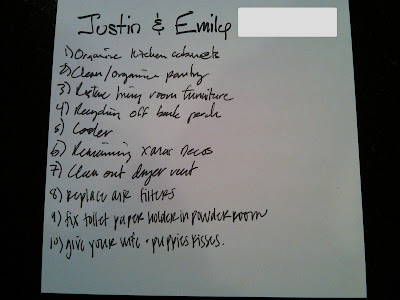 Justin & Emily
1) Organize kitchen cabinets
2) Clean/organize pantry
3) Restore living room furniture
4) Recycling off back porch
5) Cooler
6) Remaining xmas decos
7) Clean out dryer vent
8) Replace air filters
9) fix toilet paper holder in powder room
10) give your wife + puppies kisses.